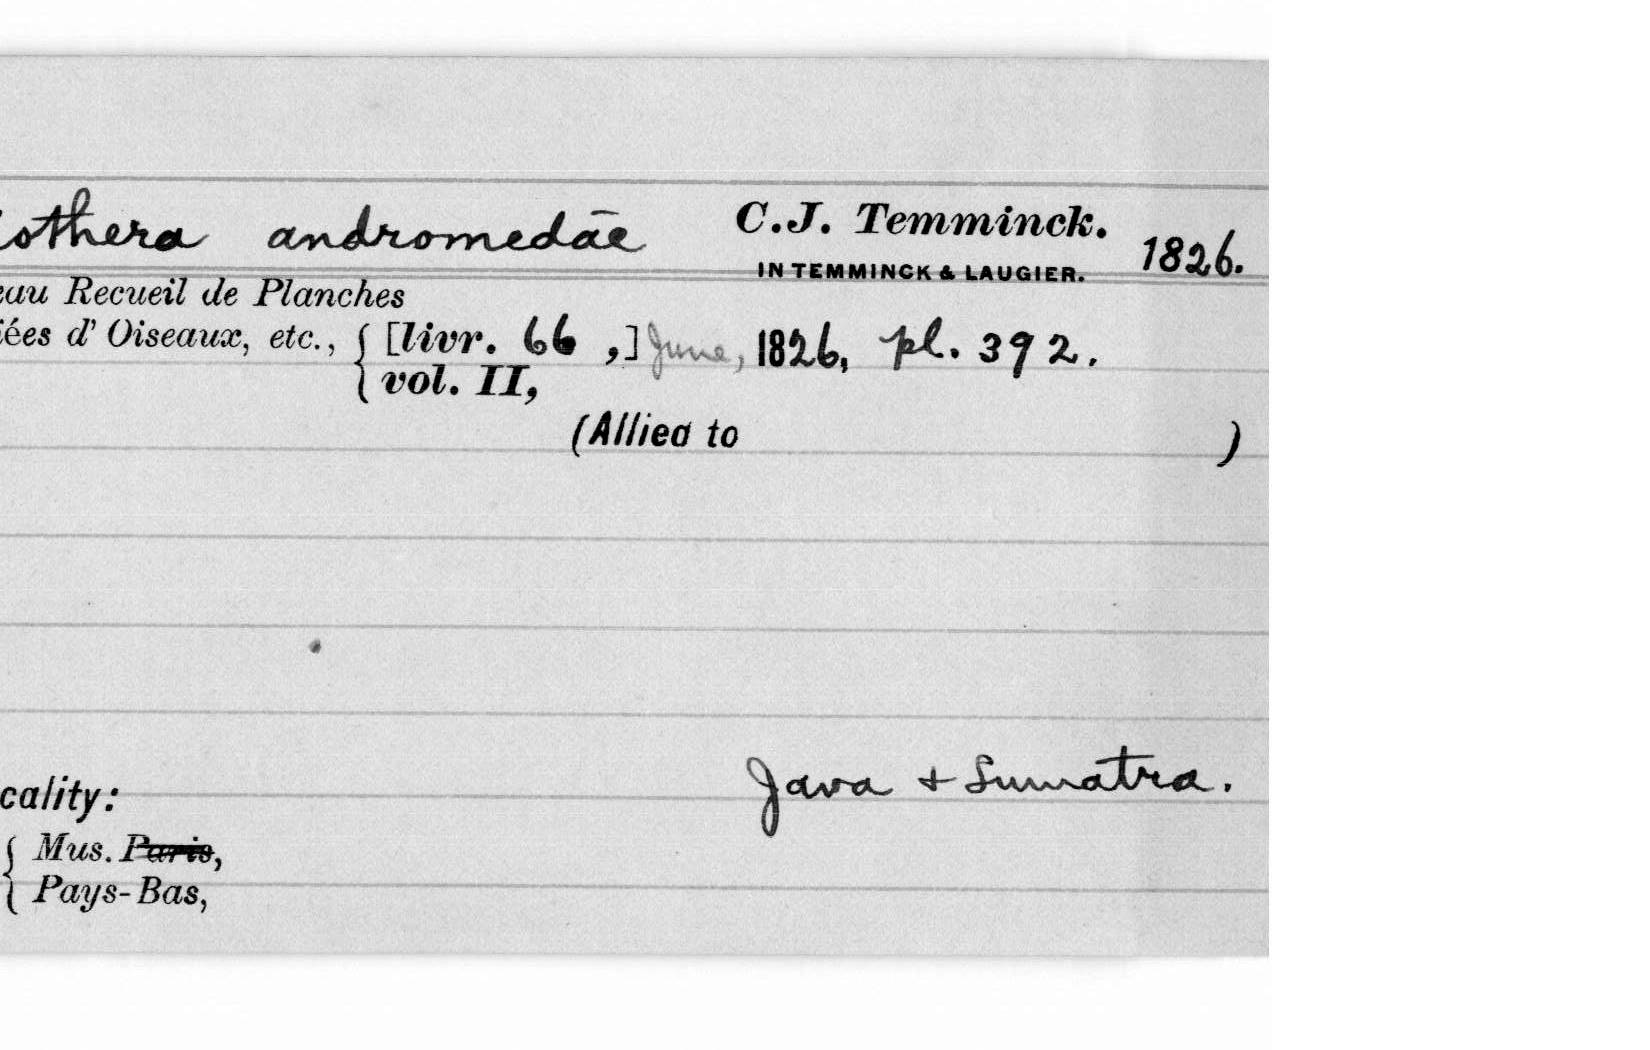 iothera andromedāe C.J. Temminck. 1826.
IN TEMMINCK & LAUGIER.
eau Recueil de Planches
iées d' Oiseaux, etc., { [livr. 66 ,] June, 1826, pl. 392.
vol. II,
(Allied to )
Java + Sumatra.
cality:
{ Mus. Paris,
Pays-Bas,